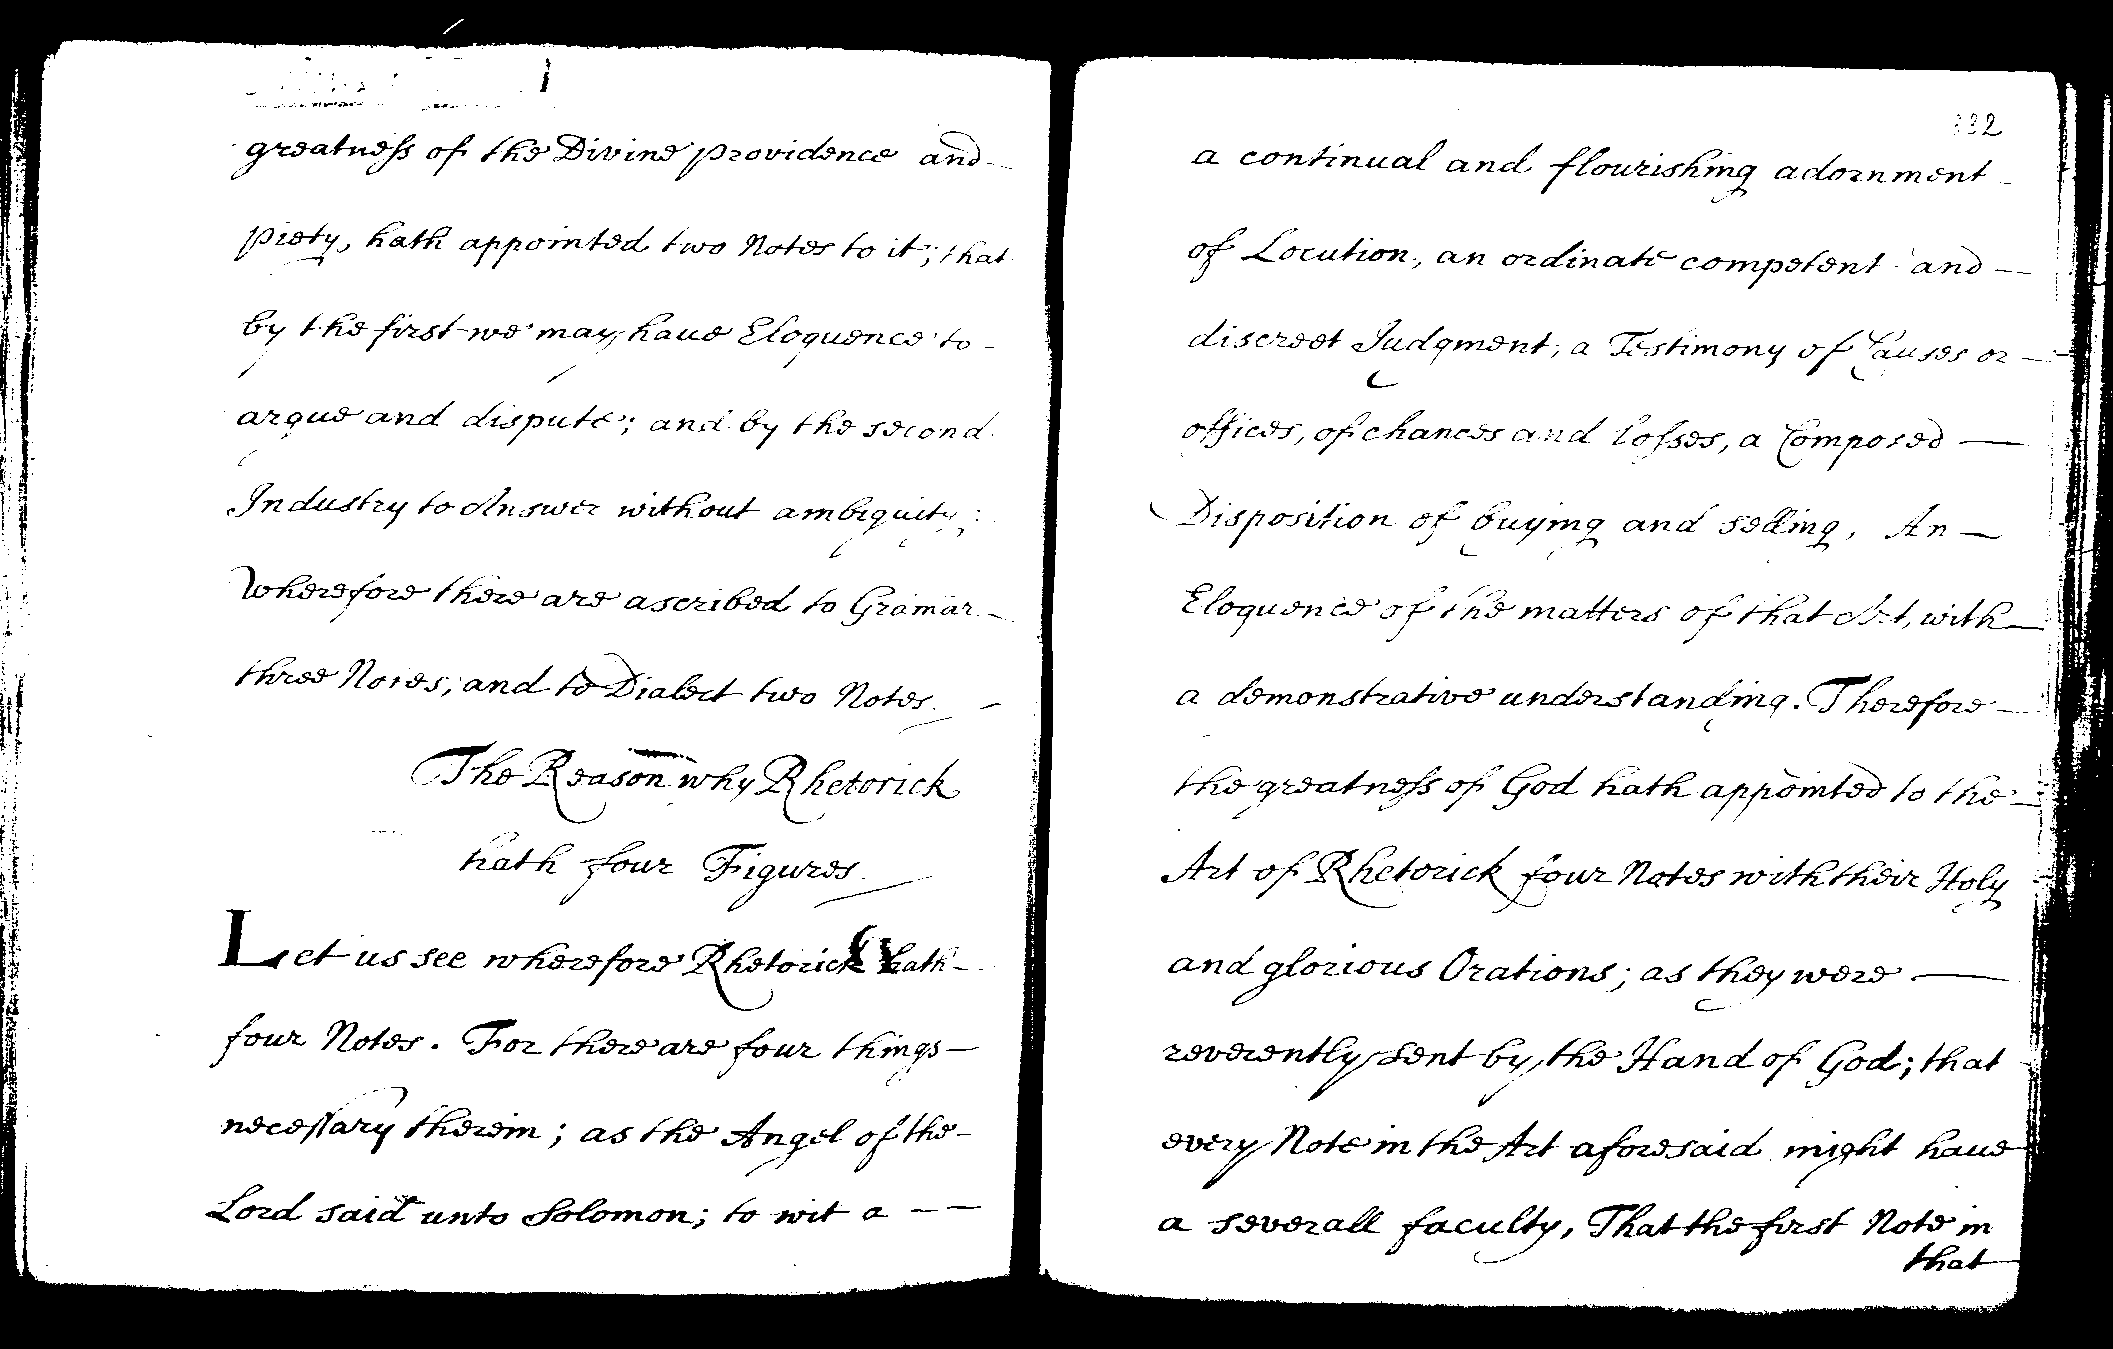 greatness of the Divine providence and
piety, hath appointed two Notes to it; that
by the first we may have Eloquence to
argue and dispute; and by the second
Industry to Answer without ambiguity;
Wherefore there are ascribed to Gramar
three Notes; and to Dialect two Notes.
The Reason why Rhetorick
hath four Figures
Let us see wherefore Rhetorick hath
four Notes. For there are four things
necessary therein; as the Angel of the
Lord said unto Solomon; to wit a
a continual and flourishing adornment
of Locution, an ordinate competent and
discreet Judgment, a Testimony of Causes or
offices, of chances and losses, a Composed
Disposition of buying and selling, An
Eloquence of the matters of that Art, with
a demonstrative understanding. Therefore
the greatness of God hath appointed to the
Art of Rhetorick four Notes with their Holy
and glorious Orations; as they were
reverently sent by the Hand of God; that
every Note in the Art aforesaid might have
a severall faculty, That the first Note in
that